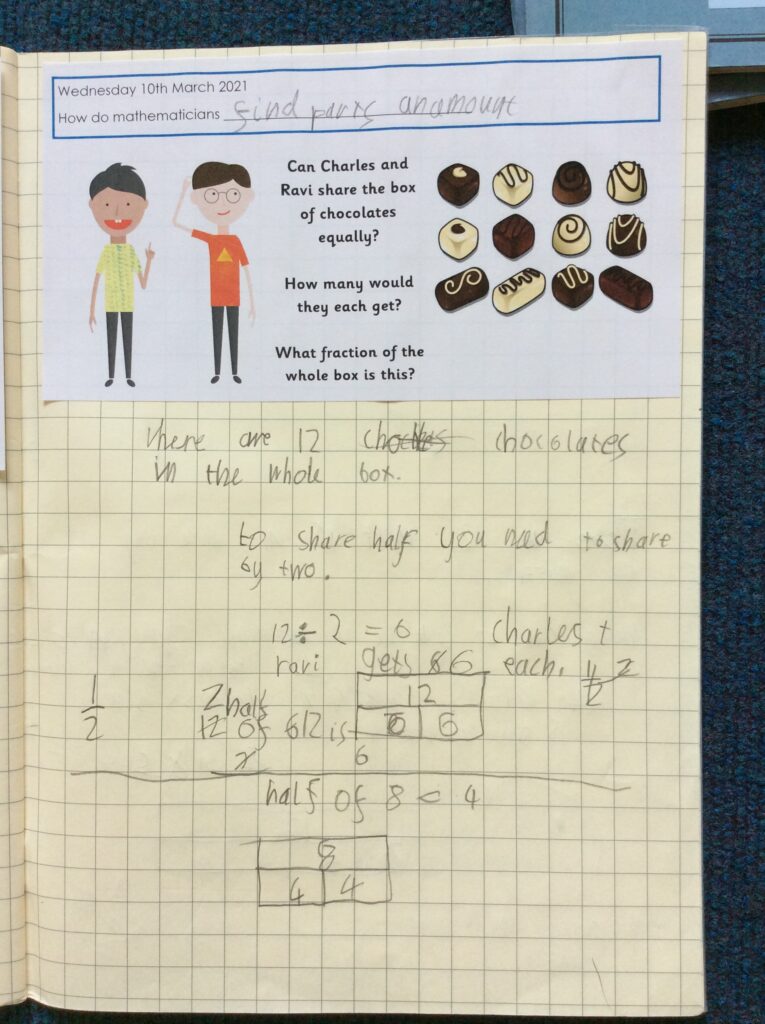 Wednesday 10th March 2021
How do mathematicians find parts an amount
Can Charles and
Ravi share the box
of chocolates
equally?
How many would
they each get?
What fraction of the
whole box is this?
there are 12 chocolates
in the whole box.
to share half you need to share
by two.
12 ÷ 2 = 6 Charles +
ravi gets 6 each.
12
6 6
1/2
half
of 12 is
6
half of 8 = 4
8
4 4